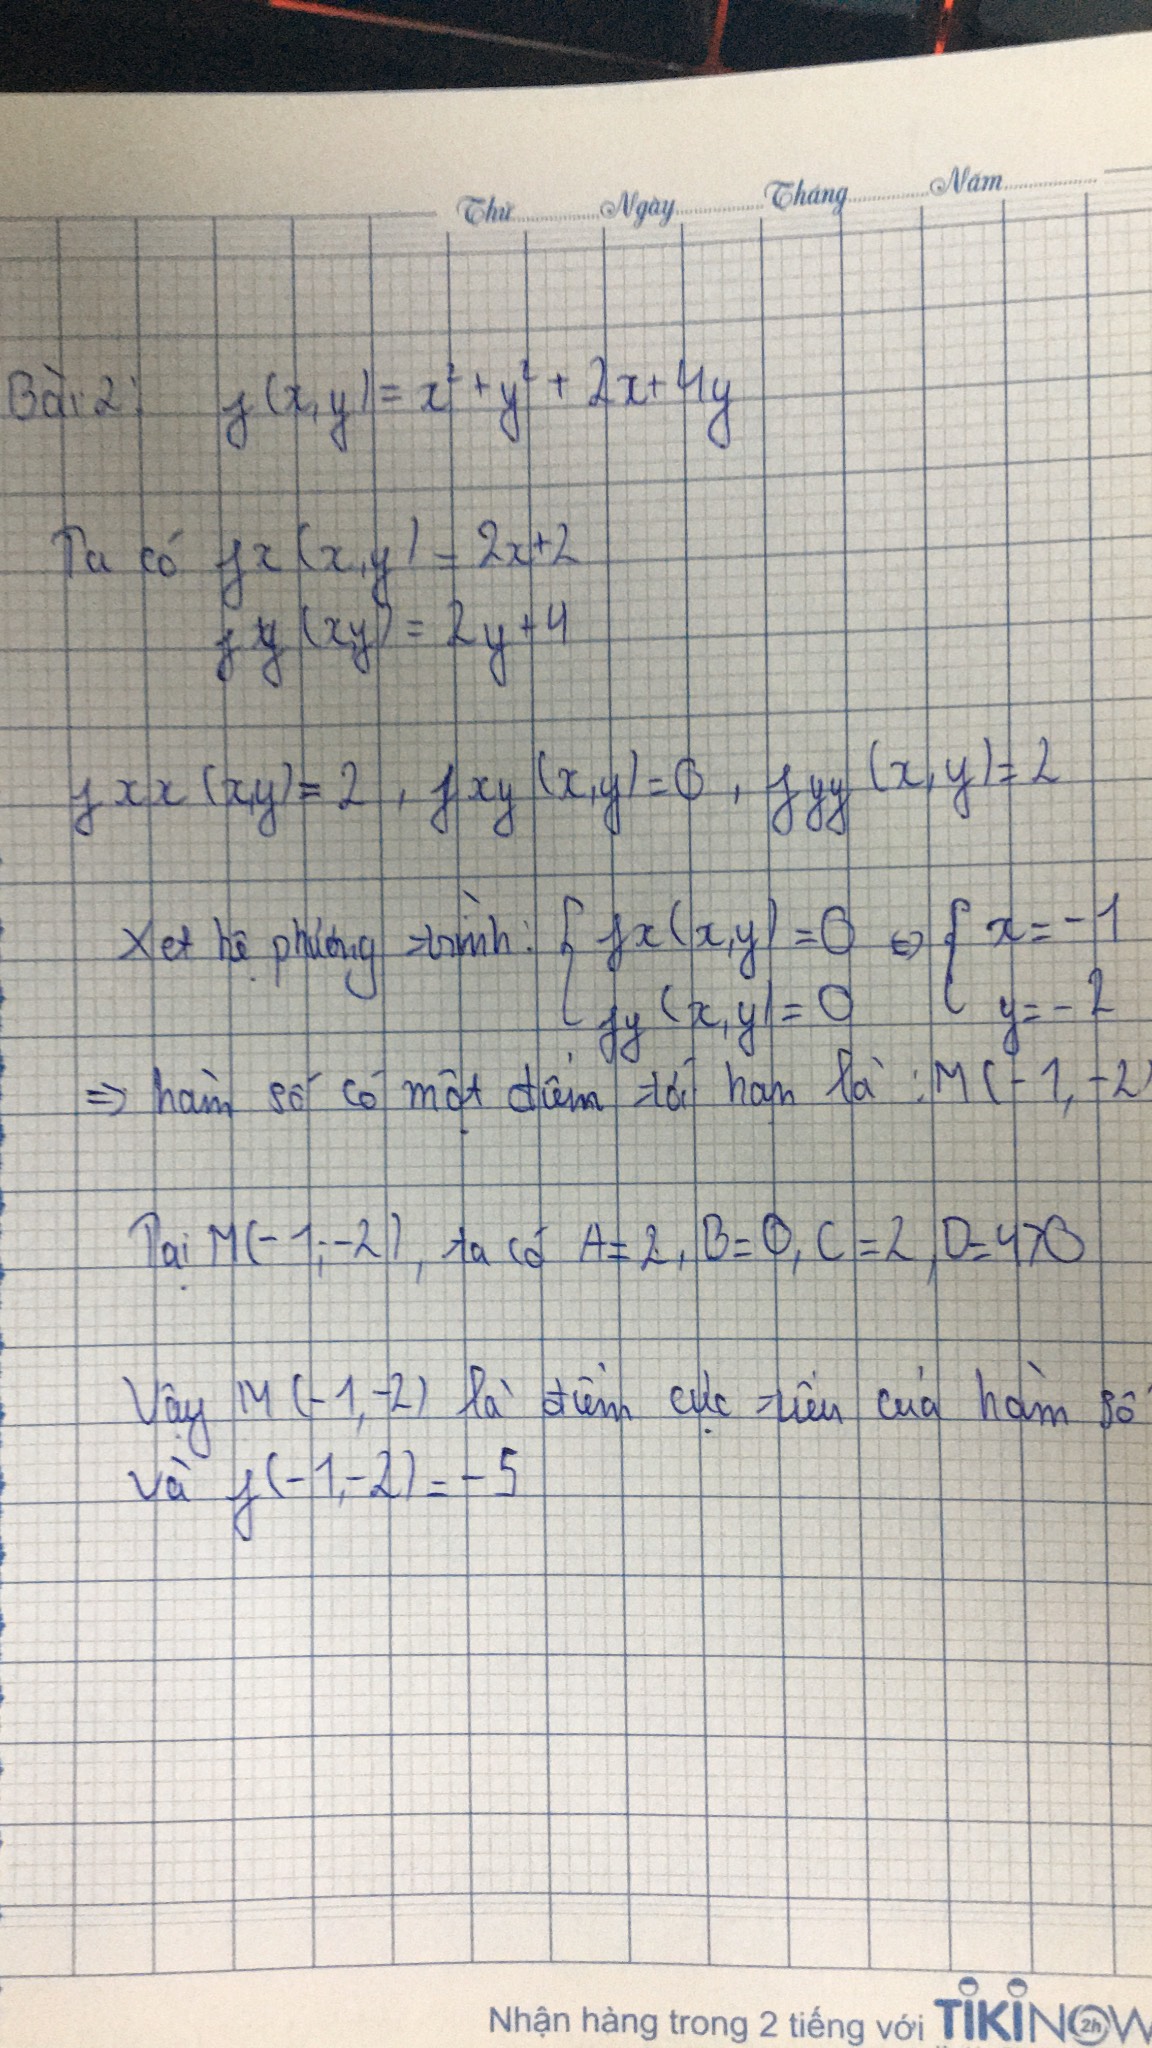 Thứ Ngày Tháng Năm
Bài 2: f(x,y) = x² + y² + 2x + 4y
Ta có fx(x,y) = 2x+2
fy(xy) = 2y+4
fxx(x,y) = 2, fxy(x,y) = 0, fyy(x,y) = 2
Xét hệ phương trình: { fx(x,y) = 0 ⇔ { x = -1
fy(x,y) = 0 y = -2
=> hàm số có một điểm tới hạn là: M(-1,-2)
Tại M(-1,-2), ta có A=2, B=0, C=2, D=4>0
Vậy M(-1,-2) là điểm cực tiểu của hàm số
và f(-1,-2) = -5
Nhận hàng trong 2 tiếng với TIKINOW 2h